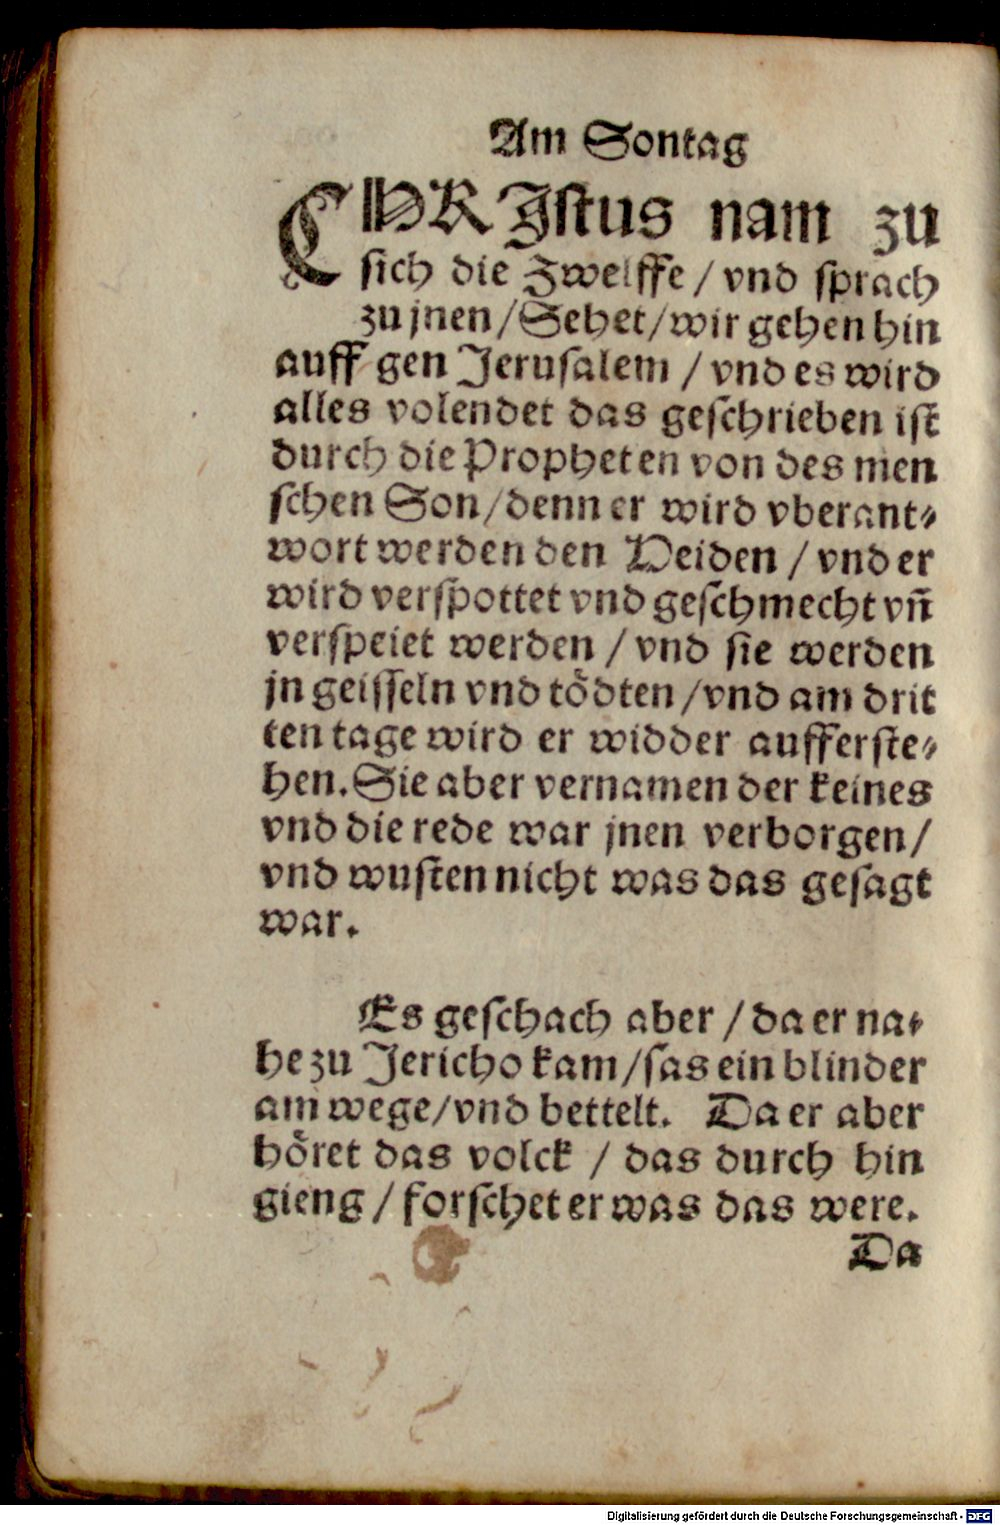 Am Sontag
CHRIſtus nam zu
ſich die Zwelffe / vnd ſprach
zu jnen / Sehet / wir gehen hin
auff gen Jeruſalem / vnd es wird
alles volendet das geſchrieben iſt
durch die Propheten von des men
ſchen Son / denn er wird vberant⸗
wort werden den Heiden / vnd er
wird verſpottet vnd geſchmecht vn̄
verſpeiet werden / vnd ſie werden
jn geiſſeln vnd toͤdten / vnd am drit
ten tage wird er widder aufferſte⸗
hen. Sie aber vernamen der keines
vnd die rede war jnen verborgen /
vnd wuſten nicht was das geſagt
war.
Es geſchach aber / da er na⸗
he zu Jericho kam / ſas ein blinder
am wege / vnd bettelt. Da er aber
hoͤret das volck / das durch hin
gieng / forſchet er was das were.
Da
Digitalisierung gefördert durch die Deutsche Forschungsgemeinschaft - DFG